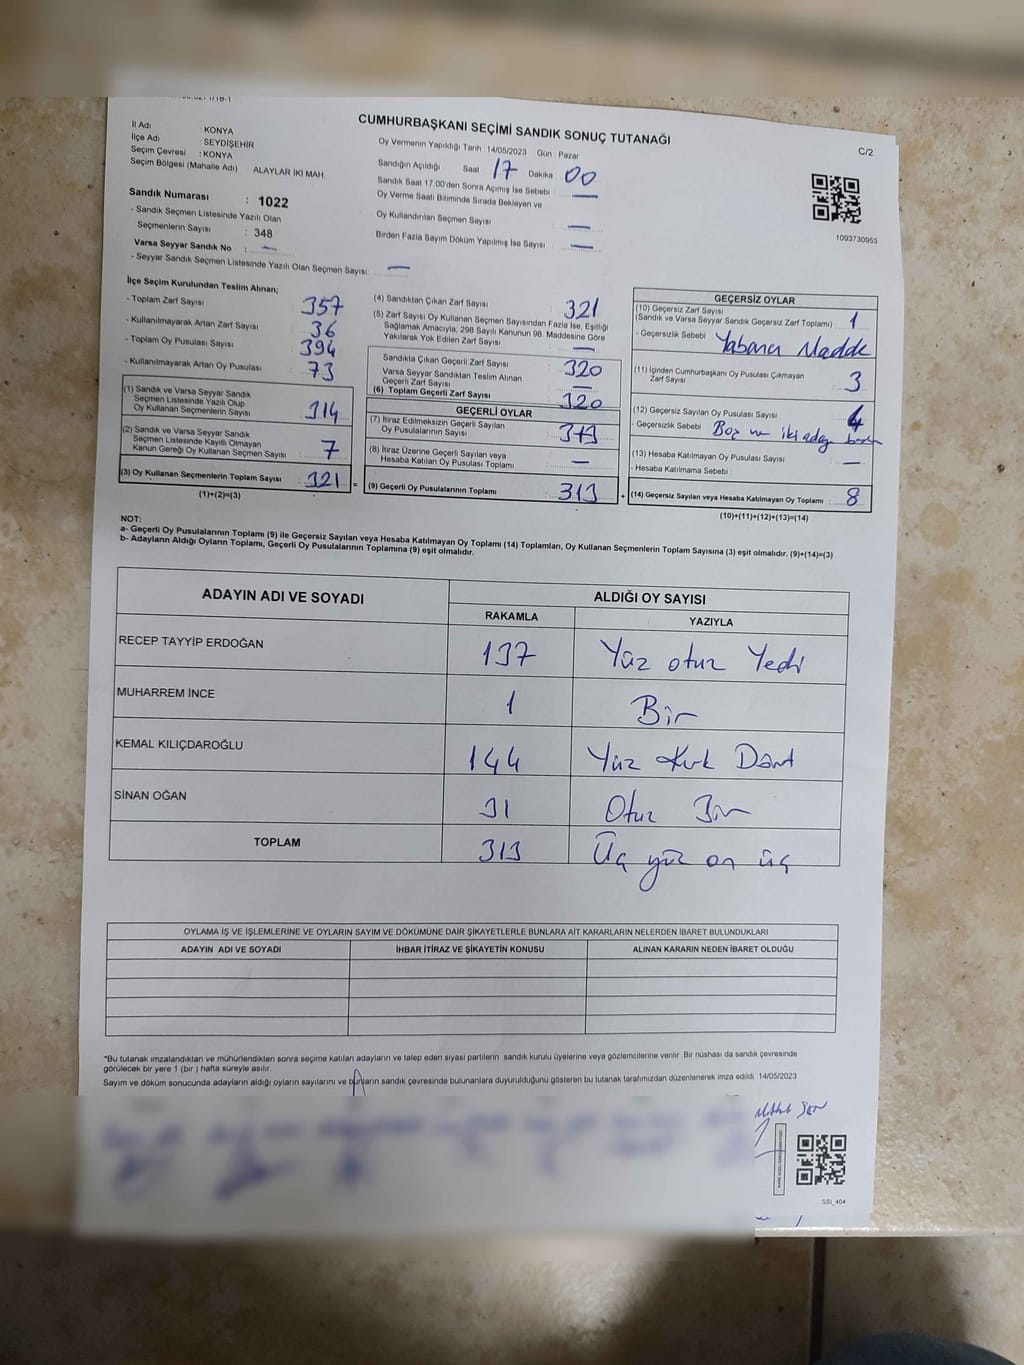 CUMHURBAŞKANI SEÇİMİ SANDIK SONUÇ TUTANAĞI
C/2
İl Adı : KONYA
İlçe Adı : SEYDİŞEHİR
Seçim Çevresi : KONYA
Seçim Bölgesi (Mahalle Adı) ALAYLAR İKİ MAH.
Sandık Numarası : 1022
- Sandık Seçmen Listesinde Yazılı Olan
Seçmenlerin Sayısı : 348
Varsa Seyyar Sandık No : —
- Seyyar Sandık Seçmen Listesinde Yazılı Olan Seçmen Sayısı: —
Oy Vermenin Yapıldığı Tarih : 14/05/2023 Gün : Pazar
Sandığın Açıldığı Saat 17 Dakika : 00
Sandık Saat 17.00'den Sonra Açılmış İse Sebebi : —
Oy Verme Saati Bitiminde Sırada Bekleyen ve
Oy Kullandırılan Seçmen Sayısı : —
Birden Fazla Sayım Döküm Yapılmış İse Sayısı : —
1093730953
İlçe Seçim Kurulundan Teslim Alınan;
- Toplam Zarf Sayısı : 357
- Kullanılmayarak Artan Zarf Sayısı : 36
- Toplam Oy Pusulası Sayısı : 394
- Kullanılmayarak Artan Oy Pusulası : 73
(1) Sandık ve Varsa Seyyar Sandık
Seçmen Listesinde Yazılı Olup
Oy Kullanan Seçmenlerin Sayısı : 314
(2) Sandık ve Varsa Seyyar Sandık
Seçmen Listesinde Kayıtlı Olmayan
Kanun Gereği Oy Kullanan Seçmen Sayısı : 7
(3) Oy Kullanan Seçmenlerin Toplam Sayısı : 321
(1)+(2)=(3)
(4) Sandıktan Çıkan Zarf Sayısı : 321
(5) Zarf Sayısı Oy Kullanan Seçmen Sayısından Fazla İse, Eşitliği
Sağlamak Amacıyla, 298 Sayılı Kanunun 98. Maddesine Göre
Yakılarak Yok Edilen Zarf Sayısı : —
Sandıkta Çıkan Geçerli Zarf Sayısı : 320
Varsa Seyyar Sandıktan Teslim Alınan
Geçerli Zarf Sayısı : —
(6) Toplam Geçerli Zarf Sayısı : 320
GEÇERLİ OYLAR
(7) İtiraz Edilmeksizin Geçerli Sayılan
Oy Pusulalarının Sayısı : 313
(8) İtiraz Üzerine Geçerli Sayılan veya
Hesaba Katılan Oy Pusulası Toplamı : —
(9) Geçerli Oy Pusulalarının Toplamı : 313
GEÇERSİZ OYLAR
(10) Geçersiz Zarf Sayısı
(Sandık ve Varsa Seyyar Sandık Geçersiz Zarf Toplamı) : 1
- Geçersizlik Sebebi : Yabancı Madde
(11) İçinden Cumhurbaşkanı Oy Pusulası Çıkmayan
Zarf Sayısı : 3
(12) Geçersiz Sayılan Oy Pusulası Sayısı : 4
- Geçersizlik Sebebi : Boş ve iki aday
(13) Hesaba Katılmayan Oy Pusulası Sayısı : —
- Hesaba Katılmama Sebebi
(14) Geçersiz Sayılan veya Hesaba Katılmayan Oy Toplamı : 8
(10)+(11)+(12)+(13)=(14)
NOT:
a- Geçerli Oy Pusulalarının Toplamı (9) ile Geçersiz Sayılan veya Hesaba Katılmayan Oy Toplamı (14) Toplamları, Oy Kullanan Seçmenlerin Toplam Sayısına (3) eşit olmalıdır. (9)+(14)=(3)
b- Adayların Aldığı Oyların Toplamı, Geçerli Oy Pusulalarının Toplamına (9) eşit olmalıdır.
ADAYIN ADI VE SOYADI ALDIĞI OY SAYISI
RAKAMLA YAZIYLA
RECEP TAYYİP ERDOĞAN 137 Yüz otuz Yedi
MUHARREM İNCE 1 Bir
KEMAL KILIÇDAROĞLU 144 Yüz Kırk Dört
SİNAN OĞAN 31 Otuz Bir
TOPLAM 313 Üç yüz on üç
OYLAMA İŞ VE İŞLEMLERİNE VE OYLARIN SAYIM VE DÖKÜMÜNE DAİR ŞİKAYETLERLE BUNLARA AİT KARARLARIN NELERDEN İBARET BULUNDUKLARI
ADAYIN ADI VE SOYADI İHBAR İTİRAZ VE ŞİKAYETİN KONUSU ALINAN KARARIN NEDEN İBARET OLDUĞU
*Bu tutanak imzalandıktan ve mühürlendikten sonra seçime katılan adayların ve talep eden siyasi partilerin sandık kurulu üyelerine veya gözlemcilerine verilir. Bir nüshası da sandık çevresinde
görülecek bir yere 1 (bir) hafta süreyle asılır.
Sayım ve döküm sonucunda adayların aldığı oyların sayılarını ve bunların sandık çevresinde bulunanlara duyurulduğunu gösteren bu tutanak tarafımızdan düzenlenerek imza edildi. 14/05/2023
SSİ_404